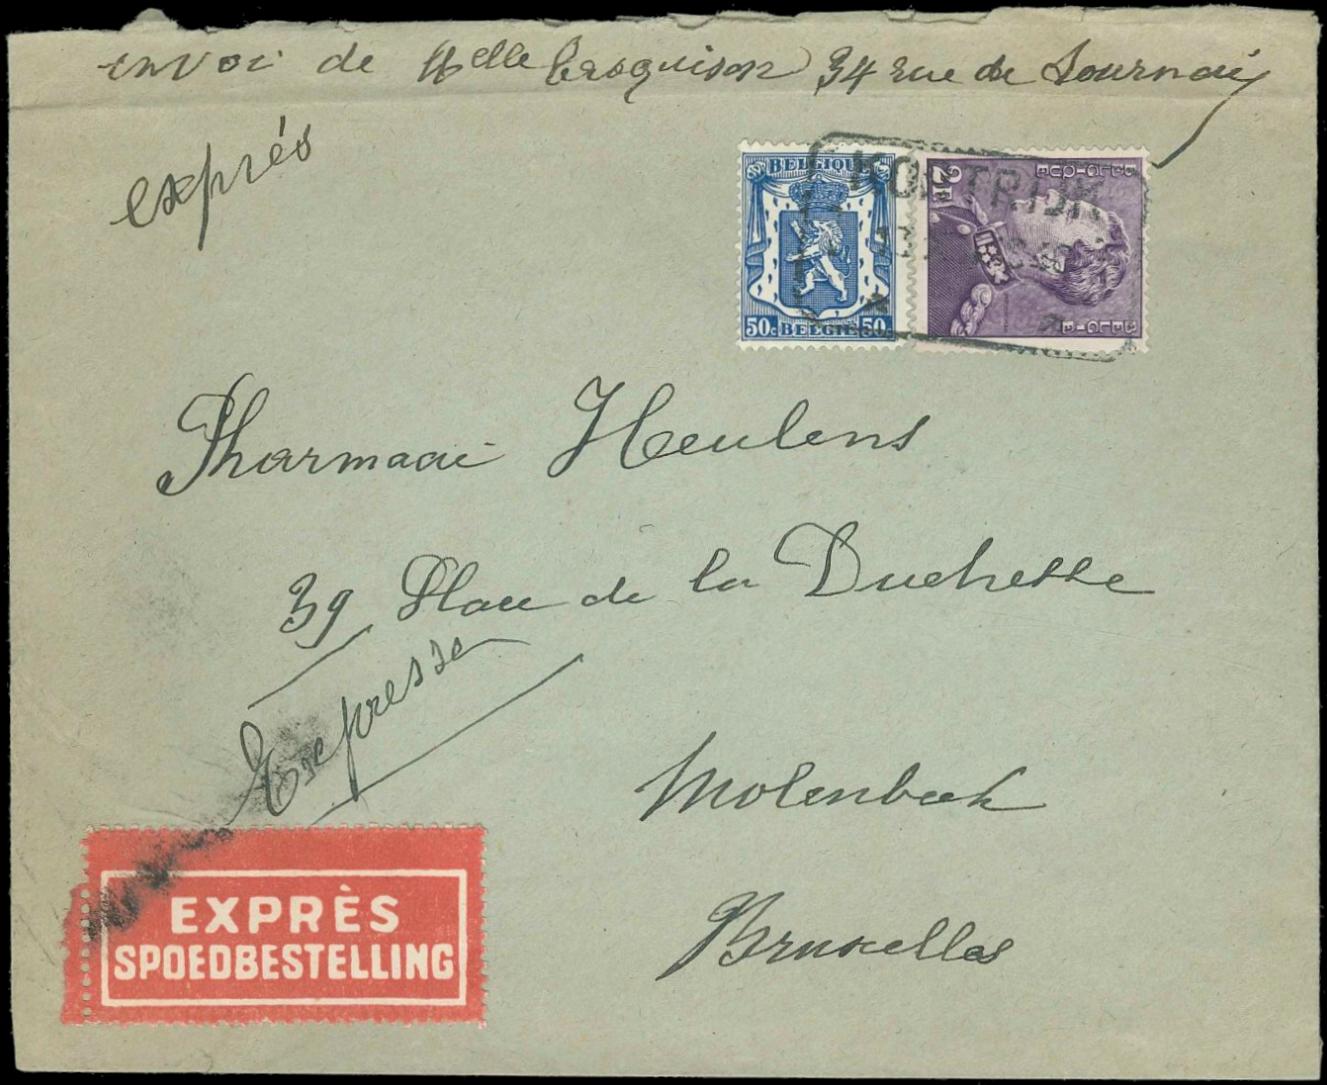 envoi de Melle Croquison 34 rue de Tournai
exprés
BELGIQUE
50c BELGIE 50c
BELGIQUE 2F
BELGIE
KORTRIJK
13
Pharmacie Heulens
39 Place de la Duchesse
Expresse
Molenbeek
Bruxelles
EXPRÈS
SPOEDBESTELLING